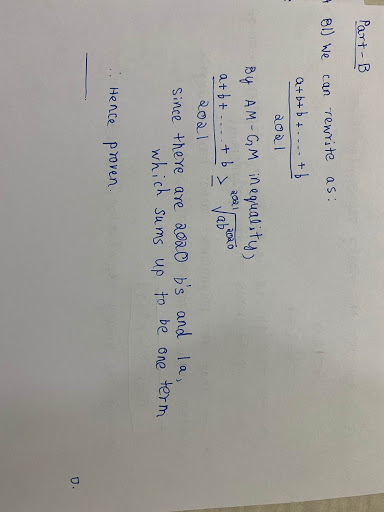 Part-B
B1) We can rewrite as:
a+b+b+....+b
2021
By AM-GM inequality,
a+b+.....+b ≥ ²⁰²¹√ab²⁰²⁰
2021
Since there are 2020 b's and 1 a,
which sums up to be one term
∴ Hence proven.
D.